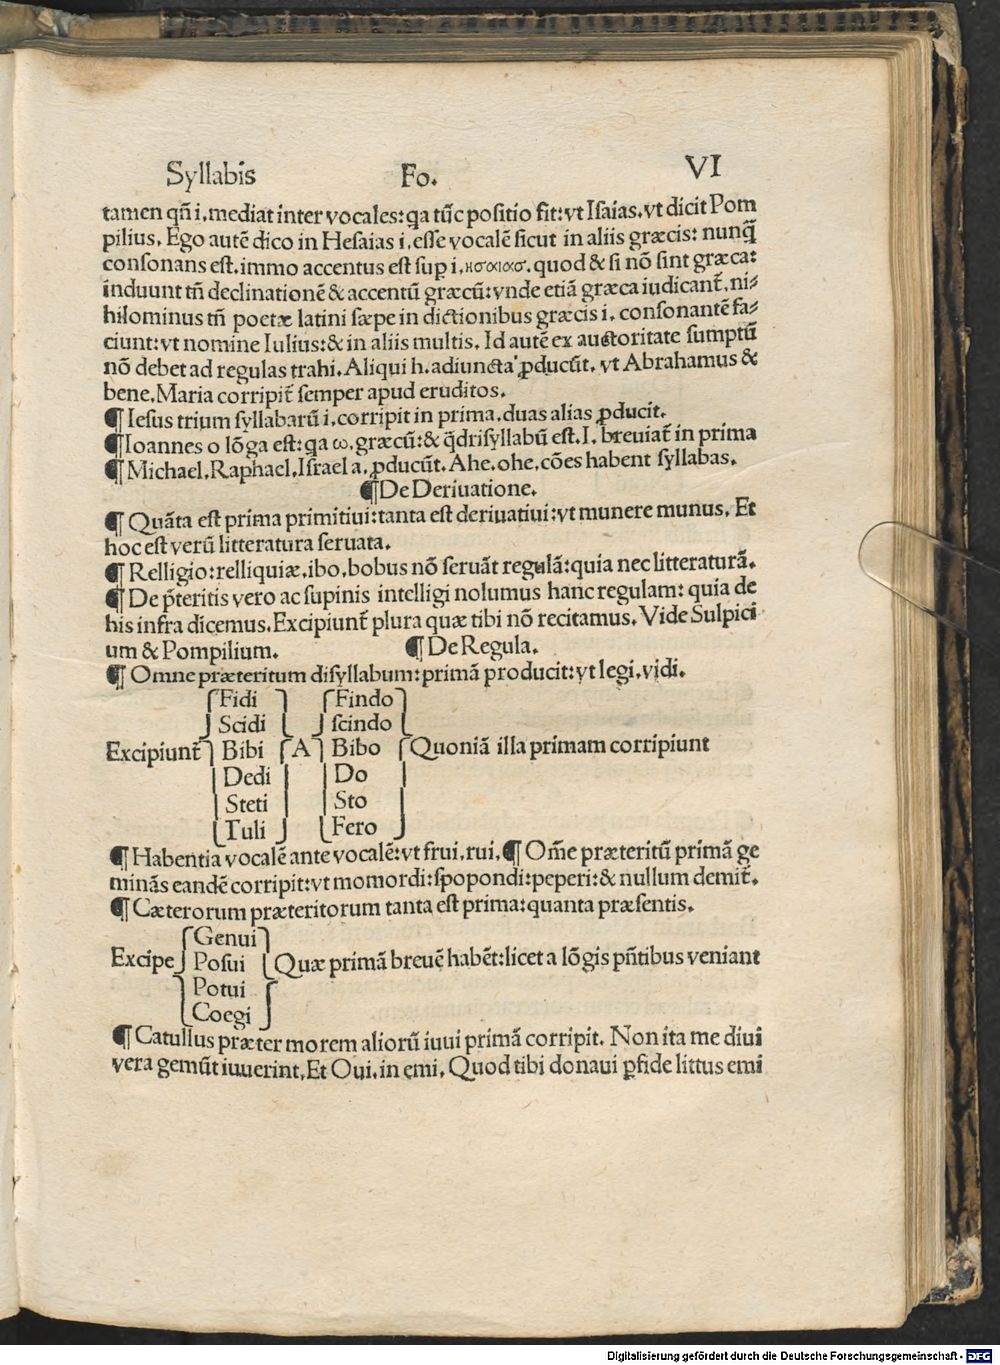 Syllabis Fo. VI
tamen qñ i. mediat inter vocales: qa tũc positio fit: vt Isaias. vt dicit Pom
pilius. Ego autẽ dico in Hesaias i. esse vocalẽ sicut in aliis græcis: nunq̃
consonans est. immo accentus est sup i. ησαιασ. quod & si nõ sint græca:
induunt tñ declinationẽ & accentũ græcũ: vnde etiã græca iudicant̃. ni⸗
hilominus tñ poetæ latini sæpe in dictionibus græcis i. consonantẽ fa⸗
ciunt: vt nomine Iulius: & in aliis multis. Id autẽ ex auctoritate sumptũ
nõ debet ad regulas trahi. Aliqui h. adiuncta ꝓducũt. vt Abrahamus &
bene. Maria corripit̃ semper apud eruditos.
¶ Iesus trium syllabarũ i. corripit in prima. duas alias ꝓducit.
¶ Ioannes o lõga est: qa ω. græcũ: & q̃drisyllabũ est. I. breuiat̃ in prima
¶ Michael. Raphael. Israel a. ꝓducũt. Ahe. ohe. cões habent syllabas.
¶ De Deriuatione.
¶ Quãta est prima primitiui: tanta est deriuatiui: vt munere munus. Et
hoc est verũ litteratura seruata.
¶ Relligio: relliquiæ. ibo. bobus nõ seruãt regulã: quia nec litteraturã.
¶ De p̃teritis vero ac supinis intelligi nolumus hanc regulam: quia de
his infra dicemus. Excipiunt̃ plura quæ tibi nõ recitamus. Vide Sulpici
um & Pompilium. ¶ De Regula.
¶ Omne præteritum disyllabum: primã producit: vt legi. vidi.
Fidi Findo
Scidi scindo
Excipiunt̃ Bibi A Bibo Quoniã illa primam corripiunt
Dedi Do
Steti Sto
Tuli Fero
¶ Habentia vocalẽ ante vocalẽ: vt frui. rui. ¶ Om̃e præteritũ primã ge
minãs eandẽ corripit: vt momordi: spopondi: peperi: & nullum demit̃.
¶ Cæterorum præteritorum tanta est prima: quanta præsentis.
Genui
Excipe Posui Quæ primã breuẽ habẽt: licet a lõgis pñtibus veniant
Potui
Coegi
¶ Catullus præter morem aliorũ iuui primã corripit. Non ita me diui
vera gemũt iuuerint. Et Oui. in emi. Quod tibi donaui ꝑfide littus emi
Digitalisierung gefördert durch die Deutsche Forschungsgemeinschaft - DFG